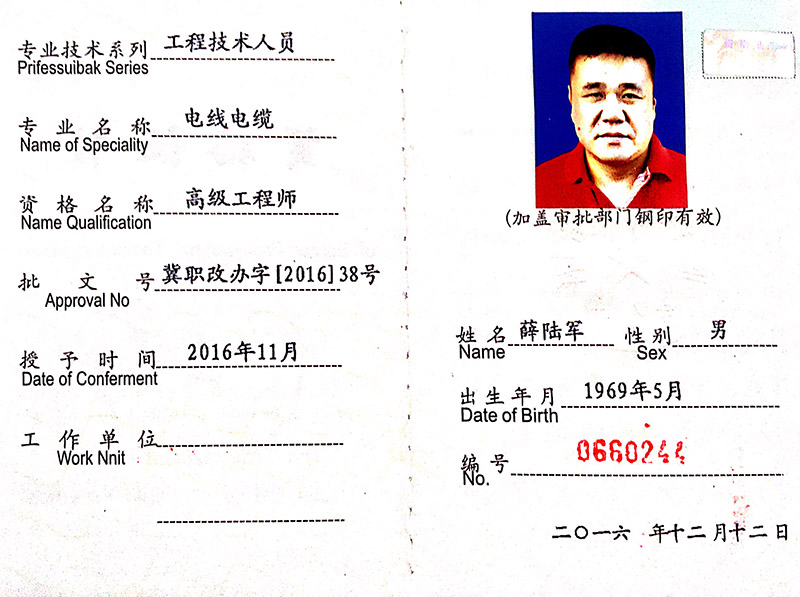 专业技术系列 工程技术人员
Prifessuibak Series
专业名称 电线电缆
Name of Speciality
资格名称 高级工程师
Name Qualification
批文号 冀职改办字[2016]38号
Approval No
授予时间 2016年11月
Date of Conferment
工作单位
Work Nnit
(加盖审批部门钢印有效)
姓名 薛陆军 性别 男
Name Sex
出生年月 1969年5月
Date of Birth
编号 0660244
No.
二〇一六 年十二月十二日